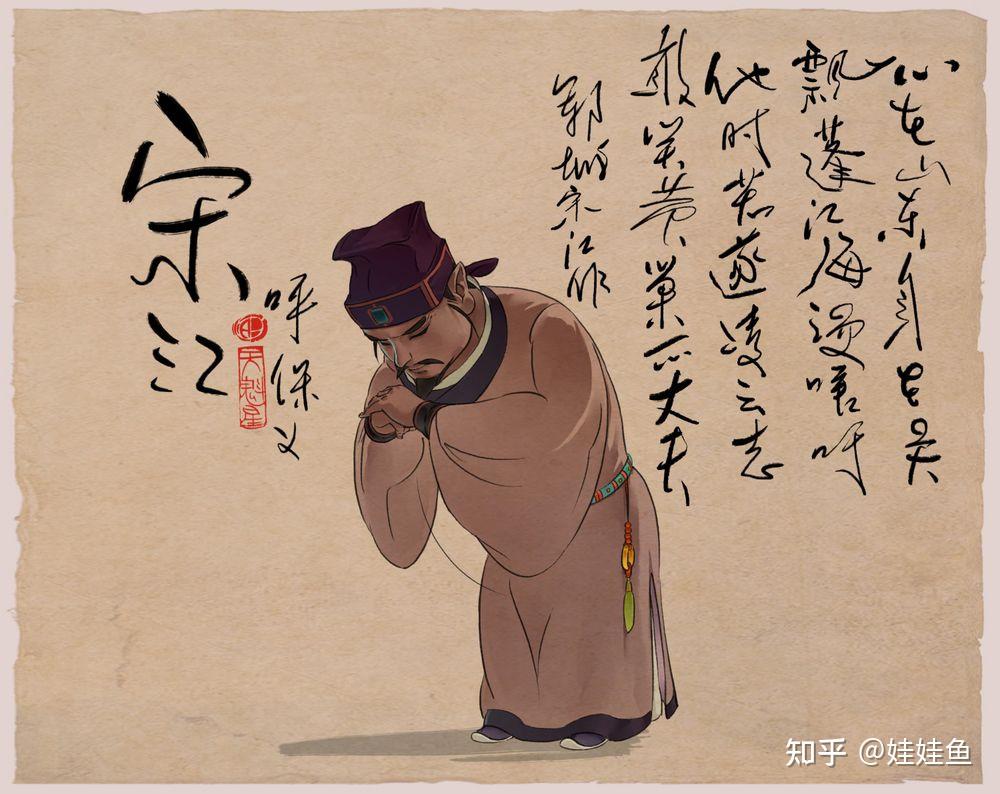 心在山东身在吴
飘蓬江海漫嗟吁
他时若遂凌云志
敢笑黄巢不丈夫
郓城宋江作
宋江
呼保义
天魁星
知乎 @娃娃鱼